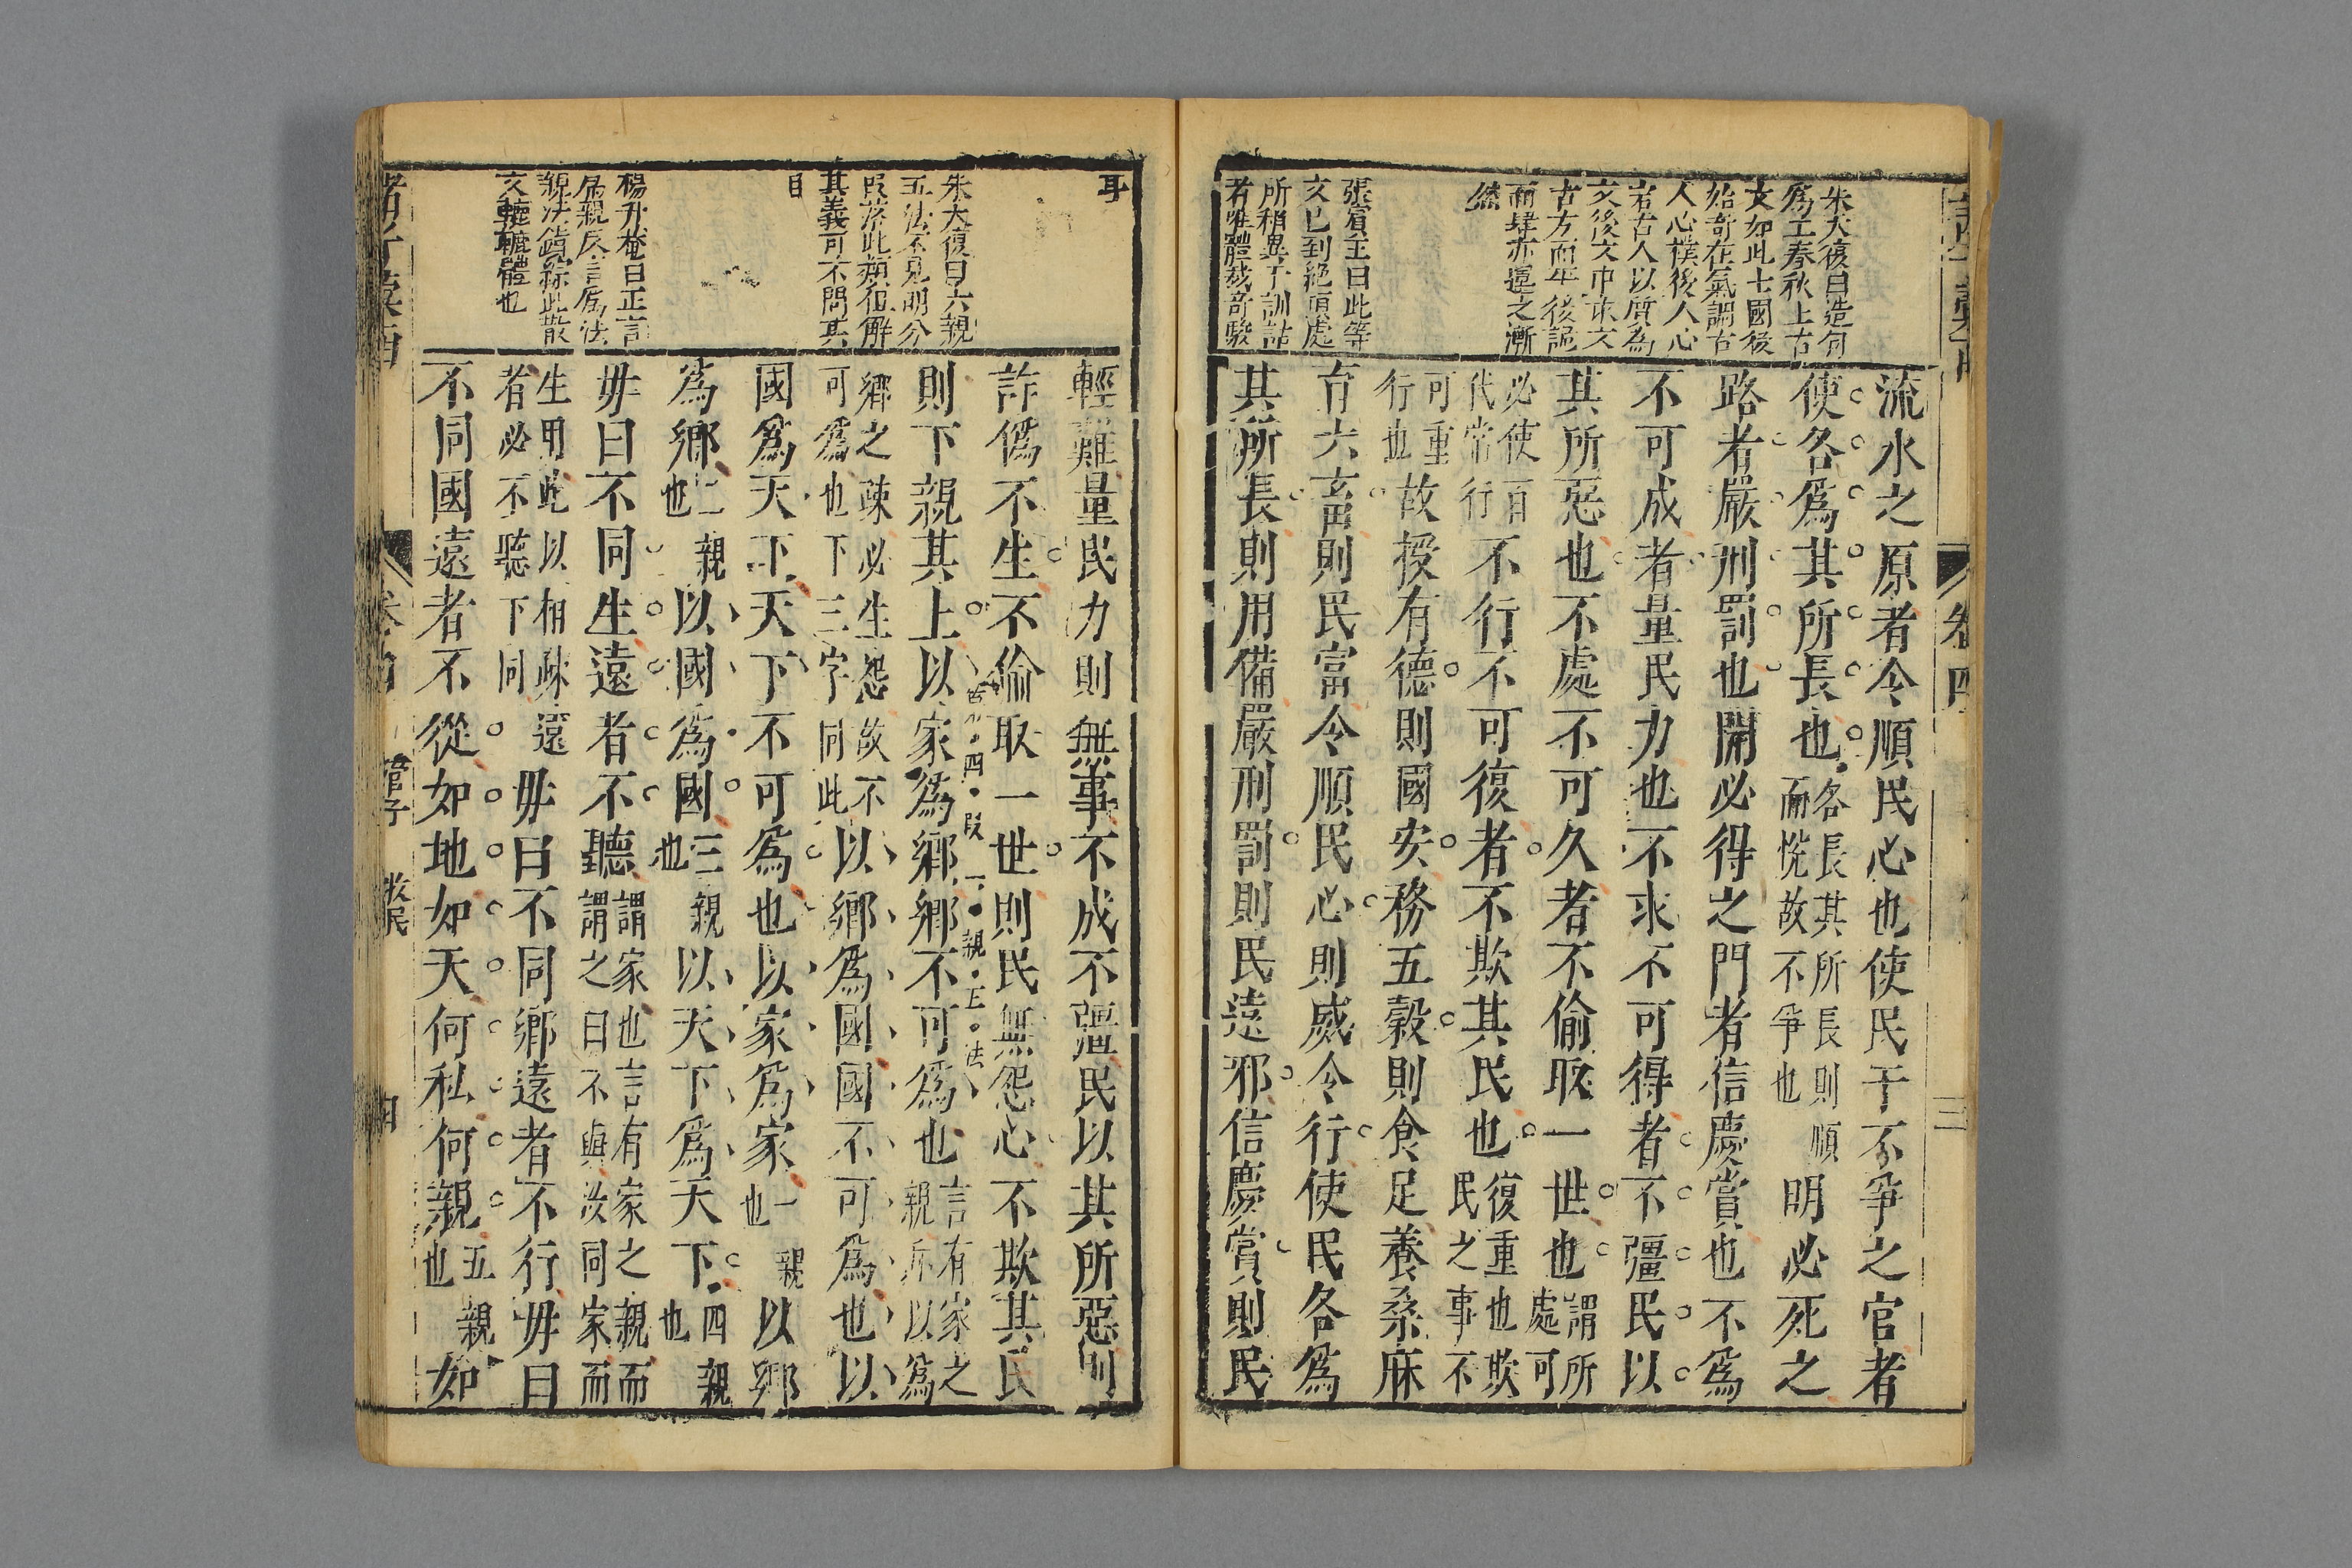 朱大復曰造句
爲工春秋上古
文如此七國後
始奇在氣調古
人心樸後人心
古人以質為
文後文巾求文
古方而平後詭
而肆亦運之漸
然
張賓王曰此等
文已到絕頂處
所稍異于訓詁
者唯體裁奇駿
流水之原者令順民心也使民于不爭之官者
使各爲其所長也各長其所長則順而悅故不爭也明必死之
路者嚴刑罰也開必得之門者信慶賞也不爲
不可成者量民力也不求不可得者不彊民以
其所惡也不處不可久者不偷取一世也謂所處可
必使百代常行不行不可復者不欺其民也復重也欺民之事不
可重行也故授有德則國安務五穀則食足養桑麻
育六畜則民富令順民心則威令行使民各爲
其所長則用備嚴刑罰則民遠邪信慶賞則民
卷四
三
耳
朱大復曰六親
五法不見明分
段落此類但解
其義可不問其
目
楊升菴曰正言
爲親反言爲法
親法錯綜此散
文轆轤體也
輕難量民力則無事不成不彊民以其所惡則
詐僞不生不偷取一世則民無怨心不欺其民
則下親其上以家爲鄉鄉不可爲也言有家之親所以爲
右第四段一親正法
鄉之疎必生怨故不可爲也下三字同此以鄉爲國國不可爲也以
國爲天下天下不可爲也以家爲家一親也以鄉
爲鄉二親也以國爲國三親也以天下爲天下四親也
毋曰不同生遠者不聽謂家也言有家之親而謂之曰不與汝同家而
生用此以相疎遠者必不聽下同毋曰不同鄉遠者不行毋曰
不同國遠者不從如地如天何私何親五親也如
管子 牧民
四